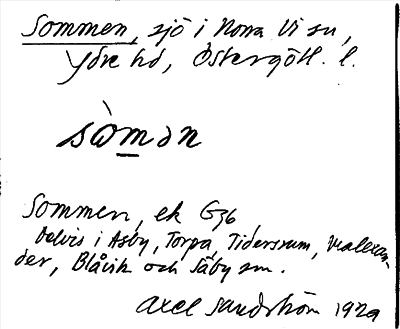 Sommen, sjö i Norra Vi sn,
Ydre hd, Östergötl. l.
sò̱mən
Sommen, ek G36
Delvis i Asby, Torpa, Tidersrum, Malexan-
der, Blåvik och Säby sn.
Axel Sandström 1929